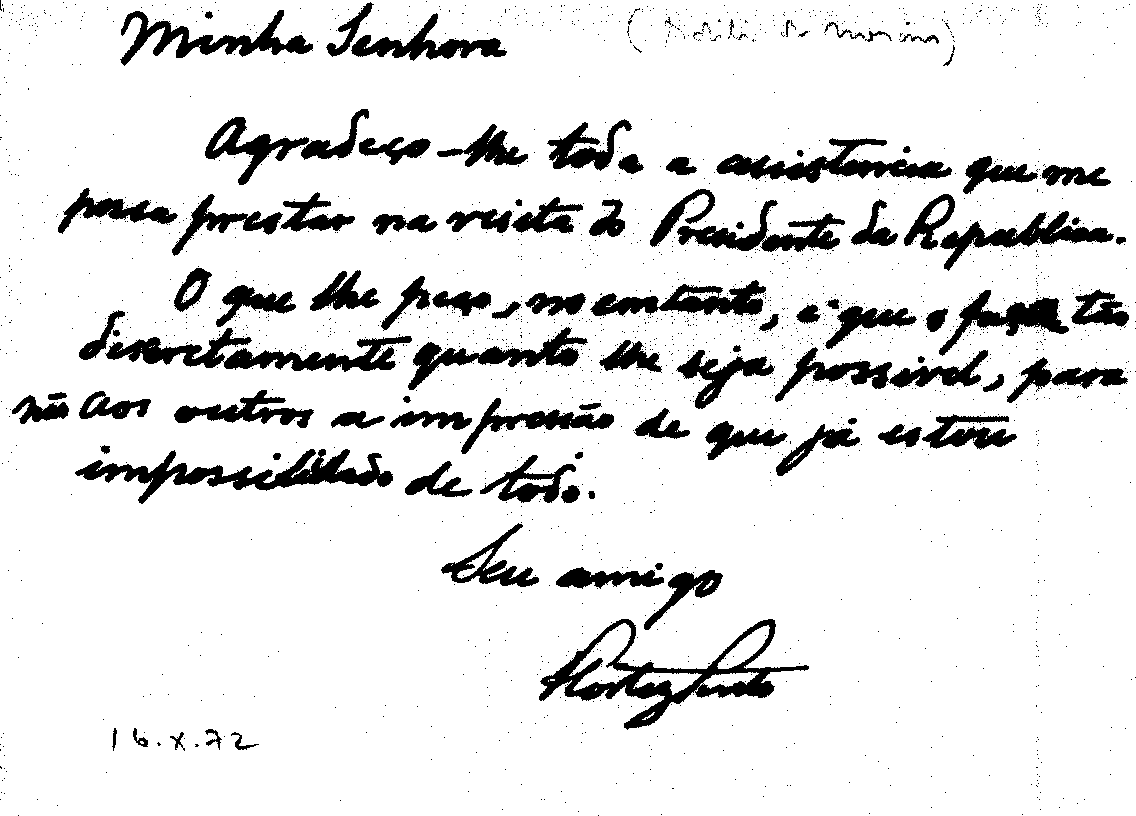 Minha Senhora
Agradeço-lhe toda a assistencia que me
possa prestar na visita do Presidente da Republica.
O que lhe peço, no emtanto, é que o faça tão
discretamente quanto lhe seja possivel, para
não aos outros a impressão de que já estou
impossibilitado de todo.
Seu amigo
Cortez Pinto
16.X.72